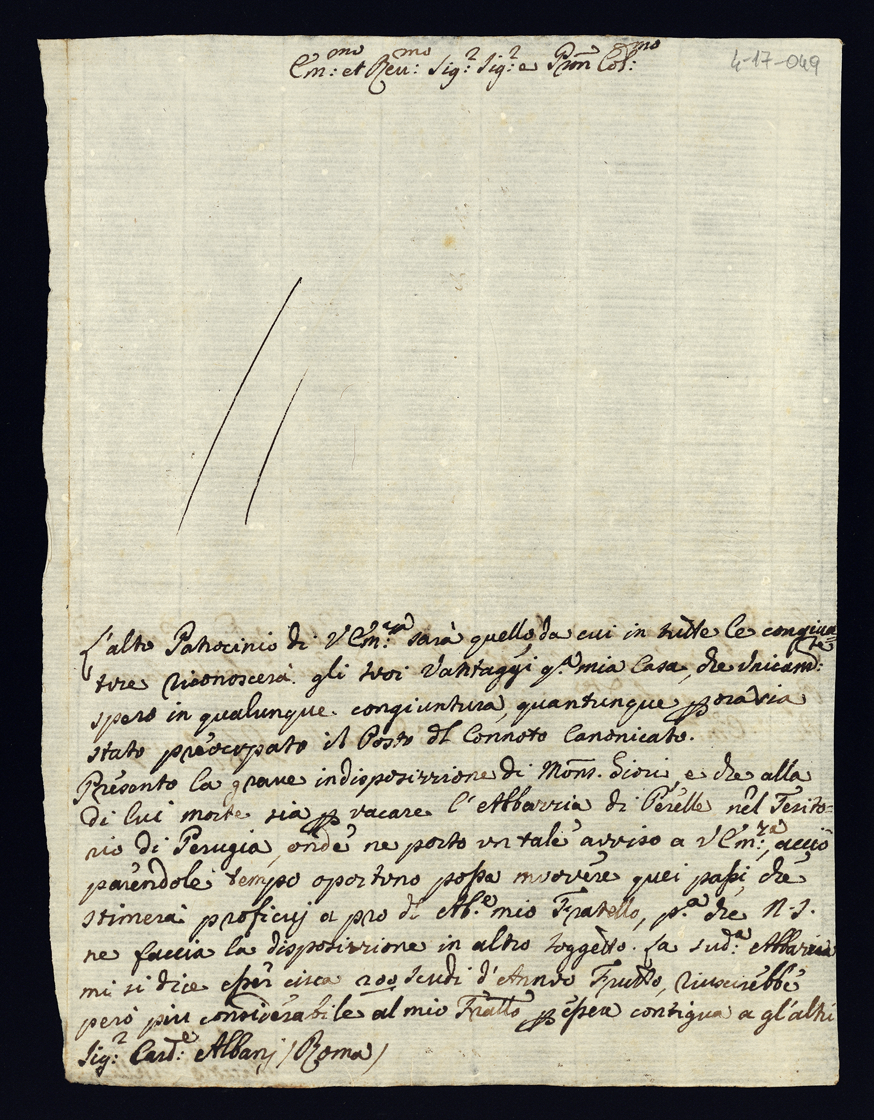 4-17-049
Em:mo et Reu:mo Sig:r Sig:r e Pron Col:mo
L'alto Patrocinio di V Em:za sarà quello da cui in tutte le congiun=
ture riconoscerà gli suoi Vantaggi q.ta mia Casa, che Unicam:te
spero in qualunque congiuntura, quantunque p ora sia
stato preocupato il Posto del Connoto Canonicato.
Presento la graue indisposizione di Mons. Giori, e che alla
di lui morte sia p vacare l'Abbazzia di Perelle nel Terito=
rio di Perugia, onde ne porto un tale avviso a V Em:za, acciò
parendole tempo oportuno possa muovere quei passi, che
stimerà proficuj a pro di Ab.e mio Fratello, p.a che N. S.
ne faccia la disposizione in altro soggetto. La sud:a Abbazzia
mi si dice esser circa 200 scudi d'Annuo Frutto, riuscirebbe
però piu considerabile al mio Fratello p esser contigua a gl'altri
Sig:r Card:e Albanj (Roma)